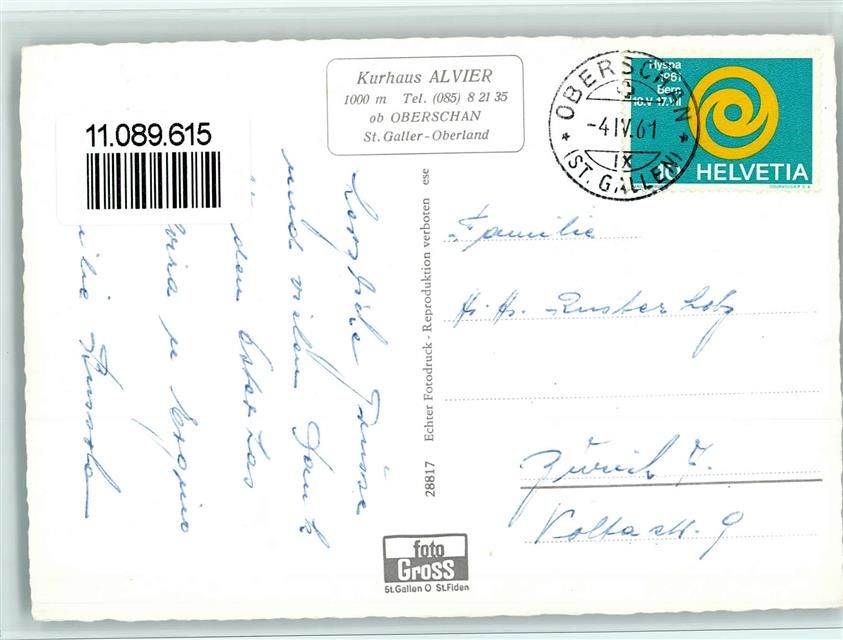 Kurhaus ALVIER
1000 m Tel. (085) 8 21 35
ob OBERSCHAN
St. Galler-Oberland
11.089.615
OBERSCHAN
-4.IV.61
IX
(ST. GALLEN)
Hyspa
1961
Bern
18.V-17.VII
10 HELVETIA
Herzliche Grüsse
und vielen Dank
den
u
Familie
Zürich 7.
Voltastr. 9
28817 Echter Fotodruck - Reproduktion verboten ese
foto
Gross
St.Gallen O St.Fiden